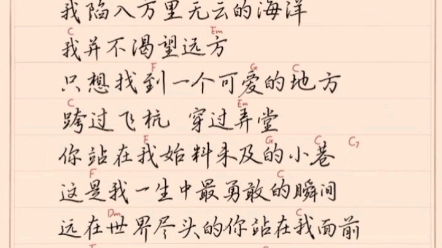 我陷入万里无云的海洋
C Em
我并不渴望远方
F G C
只想找到一个可爱的地方
C Em
跨过飞杭 穿过弄堂
F G C C7
你站在我始料来及的小巷
F C
这是我一生中最勇敢的瞬间
Dm C
远在世界尽头的你站在我面前